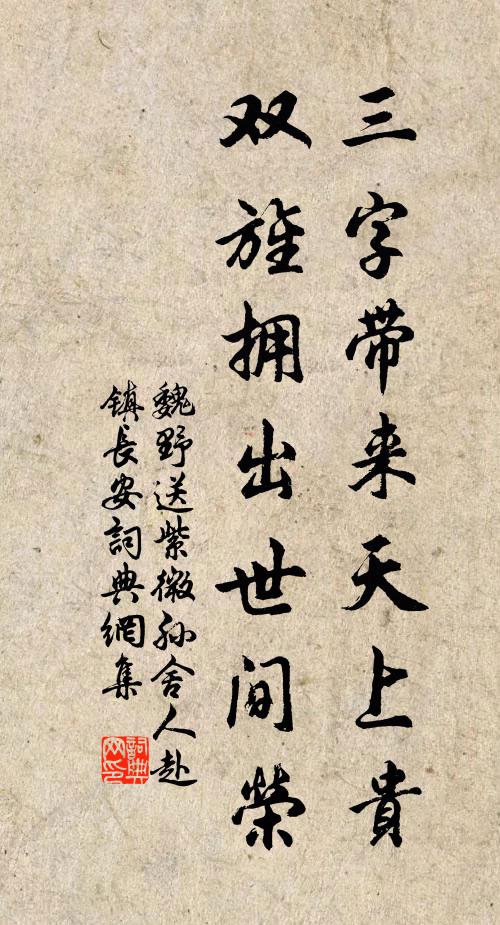 三字带来天上貴
双旌拥出世间榮
魏野送紫微孙舍人赴
镇長安詞典網集
詞典网印